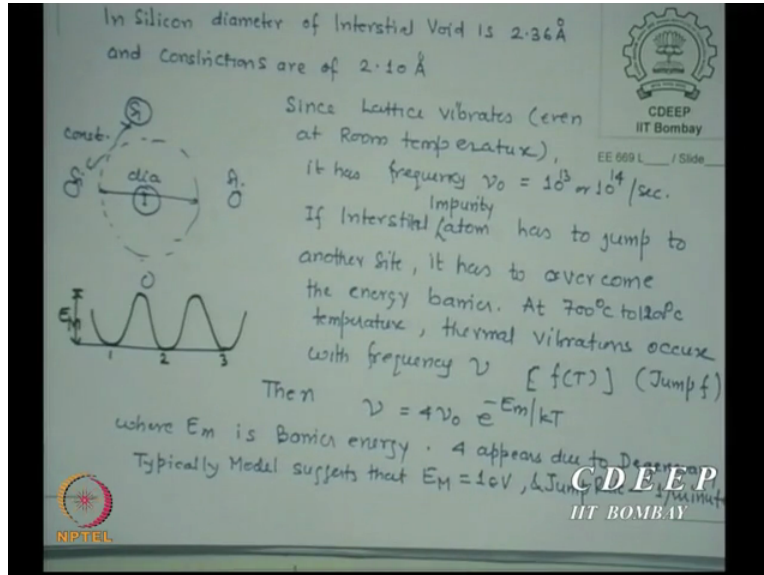 In Silicon diameter of Interstial Void is 2.36Å
and Constrictions are of 2.10 Å
CDEEP
IIT Bombay
EE 669 L___ / Slide___
Si
Const.
Si
dia
Si
I
Since Lattice vibrates (even
at Room temperature),
it has frequency ν₀ = 10¹³ or 10¹⁴/sec.
Impurity
If Interstitial atom has to jump to
another Site, it has to overcome
the energy barrier. At 700°C to 1200°C
temperature, thermal vibrations occure
with frequency ν [f(T)] (Jump f)
EM
1 2 3
Then ν = 4ν₀ e^-Em/kT
where Em is Barrier energy. 4 appears due to
Typically Model suggests that EM = 1eV, & Jump 1/minute
CDEEP
IIT BOMBAY
NPTEL